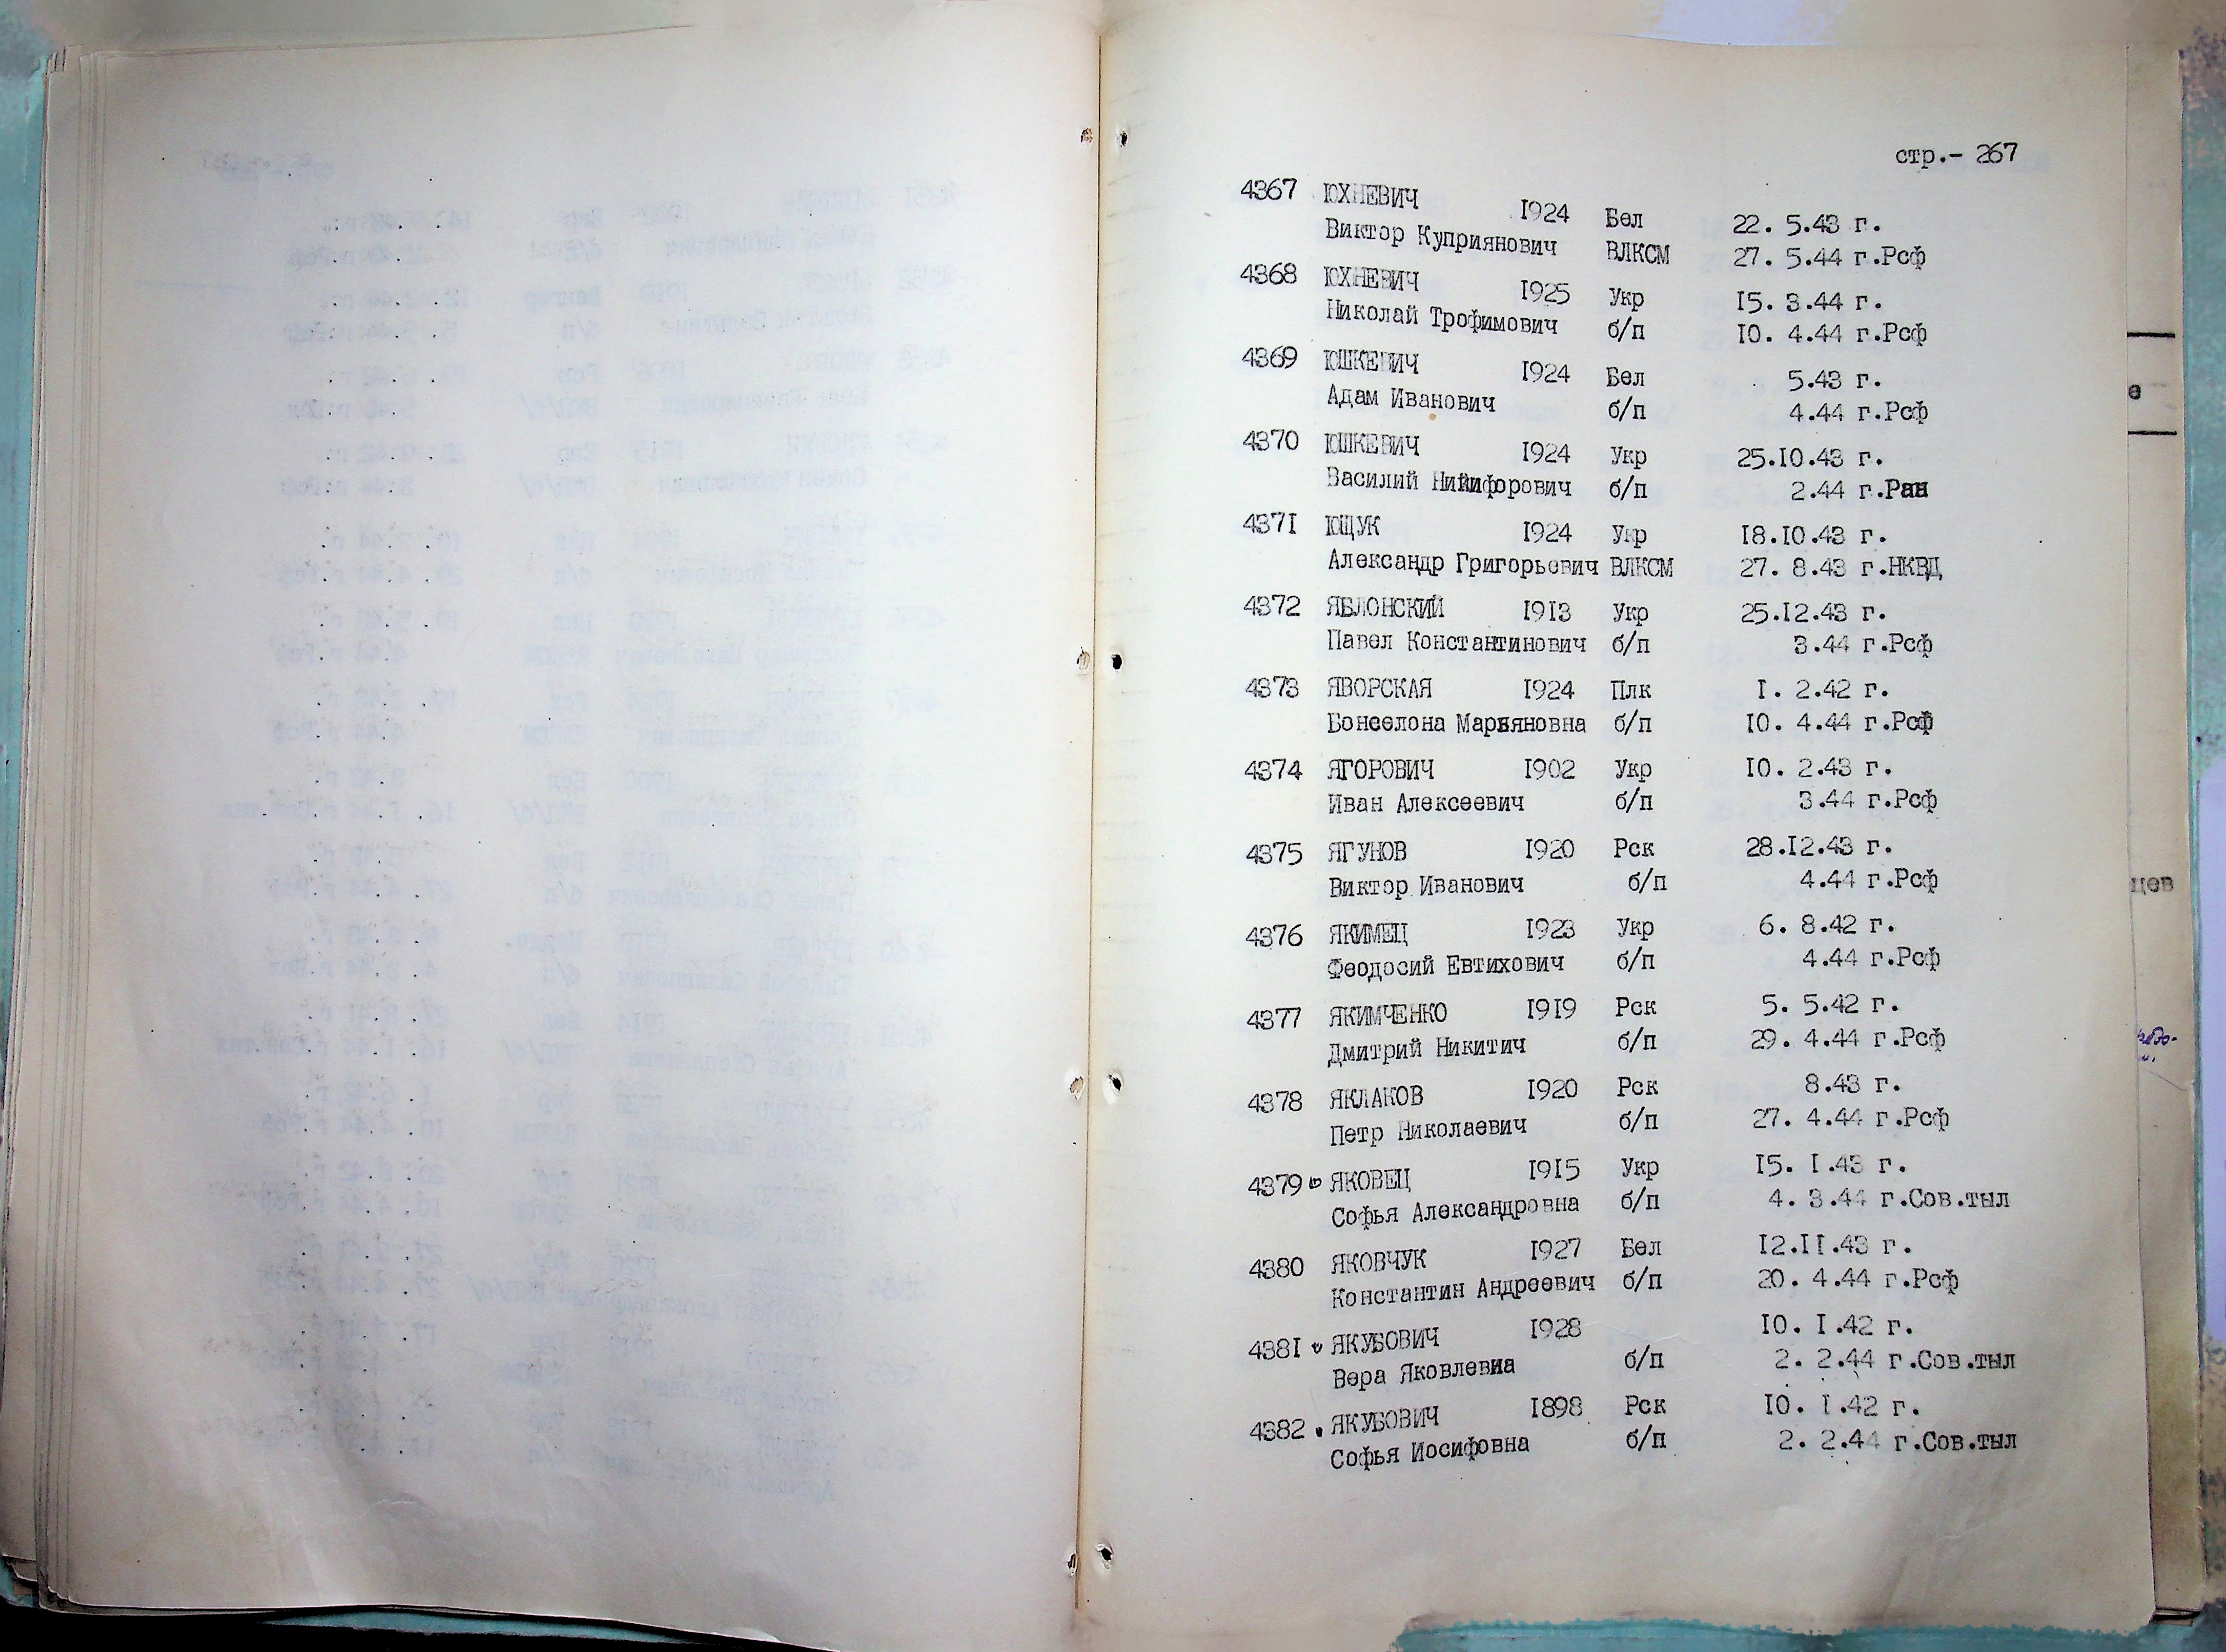 стр.- 267
4367 ЮХНЕВИЧ 1924 Бел 22. 5.43 г.
Виктор Куприянович ВЛКСМ 27. 5.44 г.Рсф
4368 ЮХНЕВИЧ 1925 Укр 15. 3.44 г.
Николай Трофимович б/п 10. 4.44 г.Рсф
4369 ЮШКЕВИЧ 1924 Бел 5.43 г.
Адам Иванович б/п 4.44 г.Рсф
4370 ЮШКЕВИЧ 1924 Укр 25.10.43 г.
Василий Никифорович б/п 2.44 г.Ран
4371 ЮЩУК 1924 Укр 18.10.43 г.
Александр Григорьевич ВЛКСМ 27. 8.43 г.НКВД
4372 ЯБЛОНСКИЙ 1913 Укр 25.12.43 г.
Павел Константинович б/п 3.44 г.Рсф
4373 ЯВОРСКАЯ 1924 Плк 1. 2.42 г.
Бонселона Марьяновна б/п 10. 4.44 г.Рсф
4374 ЯГОРОВИЧ 1902 Укр 10. 2.43 г.
Иван Алексеевич б/п 3.44 г.Рсф
4375 ЯГУНОВ 1920 Рск 28.12.43 г.
Виктор Иванович б/п 4.44 г.Рсф
4376 ЯКИМЕЦ 1923 Укр 6. 8.42 г.
Феодосий Евтихович б/п 4.44 г.Рсф
4377 ЯКИМЧЕНКО 1919 Рск 5. 5.42 г.
Дмитрий Никитич б/п 29. 4.44 г.Рсф
4378 ЯКЛАКОВ 1920 Рск 8.43 г.
Петр Николаевич б/п 27. 4.44 г.Рсф
4379 ЯКОВЕЦ 1915 Укр 15. 1.43 г.
Софья Александровна б/п 4. 3.44 г.Сов.тыл
4380 ЯКОВЧУК 1927 Бел 12.11.43 г.
Константин Андреевич б/п 20. 4.44 г.Рсф
4381 ЯКУБОВИЧ 1928 10. 1.42 г.
Вера Яковлевна б/п 2. 2.44 г.Сов.тыл
4382 ЯКУБОВИЧ 1898 Рск 10. 1.42 г.
Софья Иосифовна б/п 2. 2.44 г.Сов.тыл